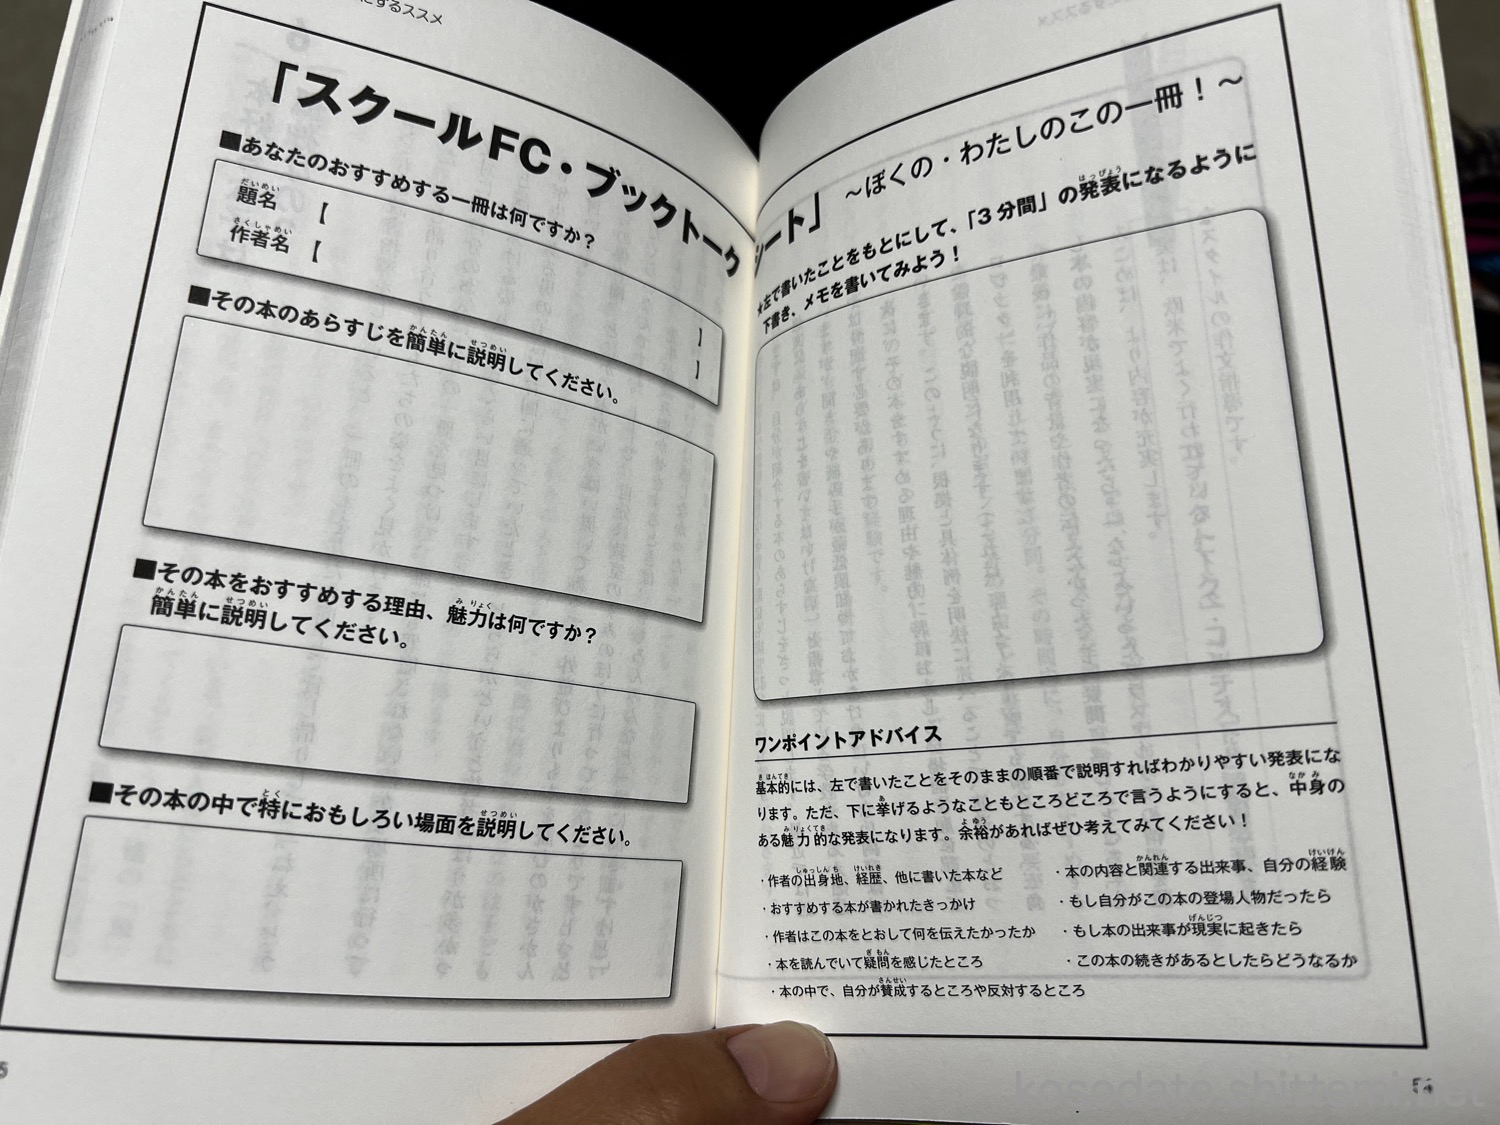 にするススメ
「スクールFC・ブックトークシート」 ～ぼくの・わたしのこの一冊！～
■あなたのおすすめする一冊は何ですか？
題名 【 】
作者名 【 】
■その本のあらすじを簡単に説明してください。
■その本をおすすめする理由、魅力は何ですか？
簡単に説明してください。
■その本の中で特におもしろい場面を説明してください。
★左で書いたことをもとにして、「3分間」の発表になるように
下書き、メモを書いてみよう！
ワンポイントアドバイス
基本的には、左で書いたことをそのままの順番で説明すればわかりやすい発表にな
ります。ただ、下に挙げるようなこともところどころで言うようにすると、中身の
ある魅力的な発表になります。余裕があればぜひ考えてみてください！
・作者の出身地、経歴、他に書いた本など
・おすすめする本が書かれたきっかけ
・作者はこの本をとおして何を伝えたかったか
・本を読んでいて疑問を感じたところ
・本の中で、自分が賛成するところや反対するところ
・本の内容と関連する出来事、自分の経験
・もし自分がこの本の登場人物だったら
・もし本の出来事が現実に起きたら
・この本の続きがあるとしたらどうなるか